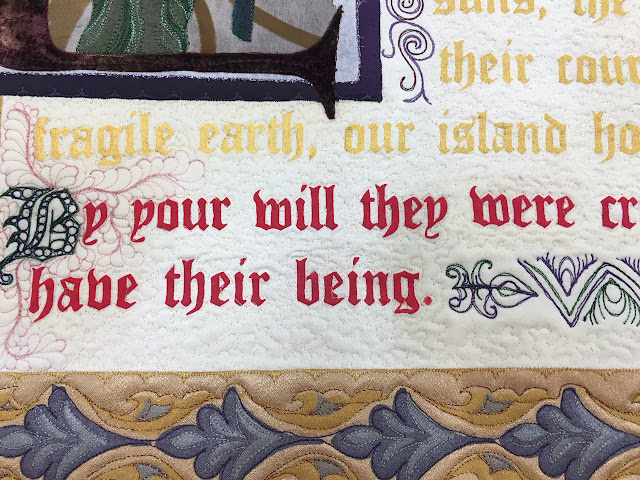 suns, the
their cour
fragile earth, our island ho
By your will they were cr
have their being.